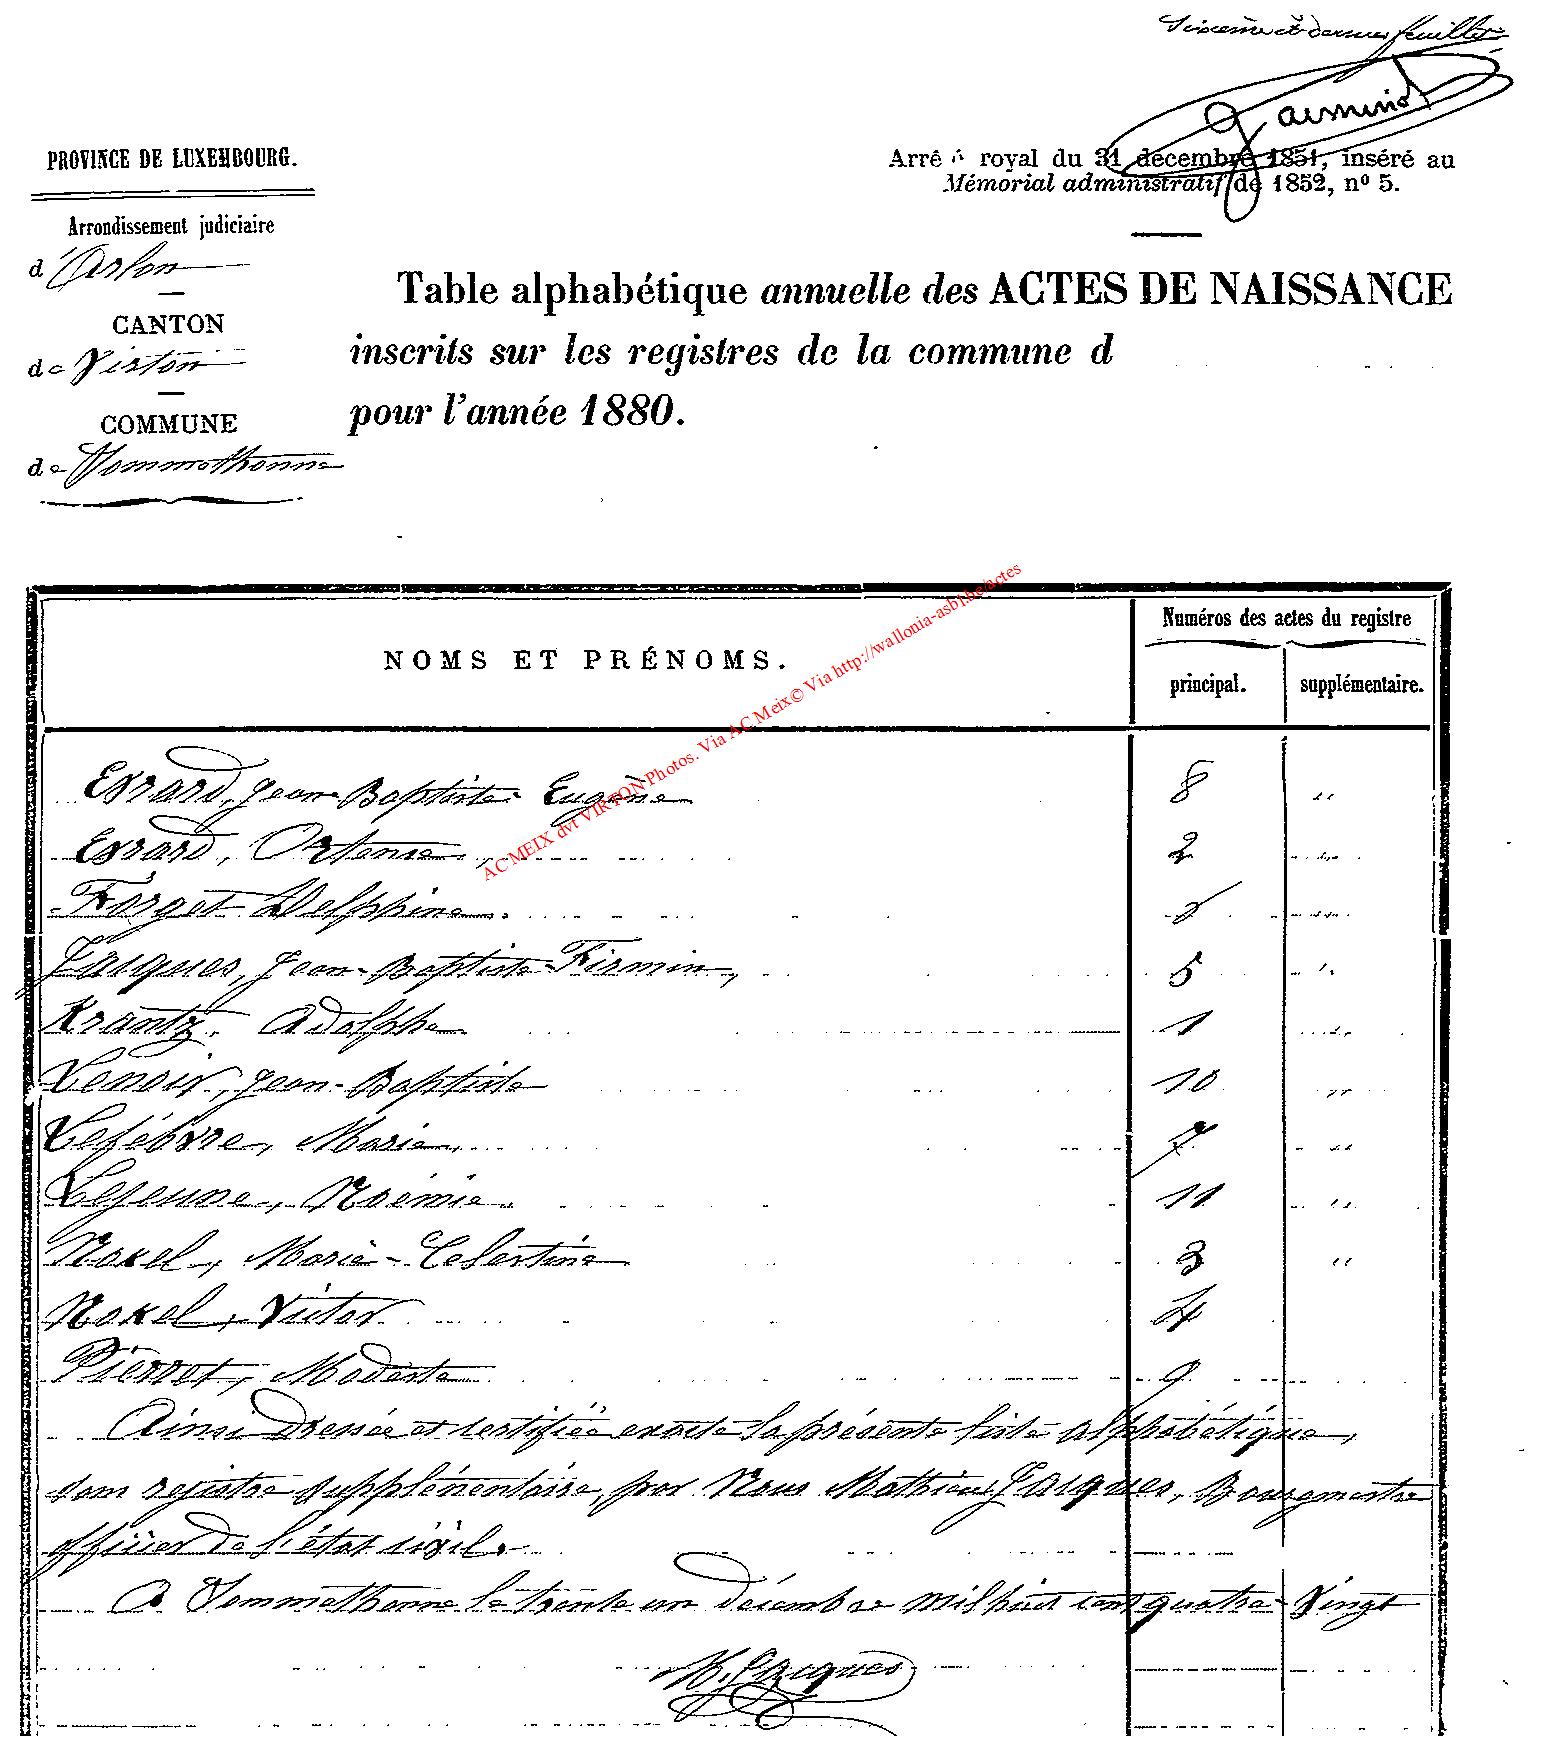 Sixième et dernier feuillet
PROVINCE DE LUXEMBOURG.
Arrê royal du 31 décembre 1851, inséré au
Mémorial administratif de 1852, nº 5.
Arrondissement judiciaire
d'Arlon
CANTON
de Virton
COMMUNE
de Sommethonne
Table alphabétique annuelle des ACTES DE NAISSANCE
inscrits sur les registres de la commune d
pour l'année 1880.
NOMS ET PRÉNOMS.
Numéros des actes du registre
principal. supplémentaire.
AC MEIX dvt VIRTON Photos. Via AC Meix© Via http://wallonia-asbl.be/actes
Evrard, Jean-Baptiste Eugène 8 ""
Evrard, Ortense 2 ""
Forget Delphine ""
Jacques, Jean-Baptiste-Firmin, 5 ""
Krantz, Adolphe 1 ""
Lenoir, Jean-Baptiste 10 ""
Lefébvre, Marie 7 ""
Lejeune, Noémie 11 ""
Noxel, Marie-Celestine 3 ""
Noxel, Victor 4
Pierret, Modeste 9
Ainsi dressée et certifiée exacte la présente liste alphabétique,
sans registre supplémentaire, par Nous Mathieu Jacques, Bourgmestre
officier de l'état civil.
A Sommethonne le trente un décembre mil huit cent quatre-Vingt
M. Jacques